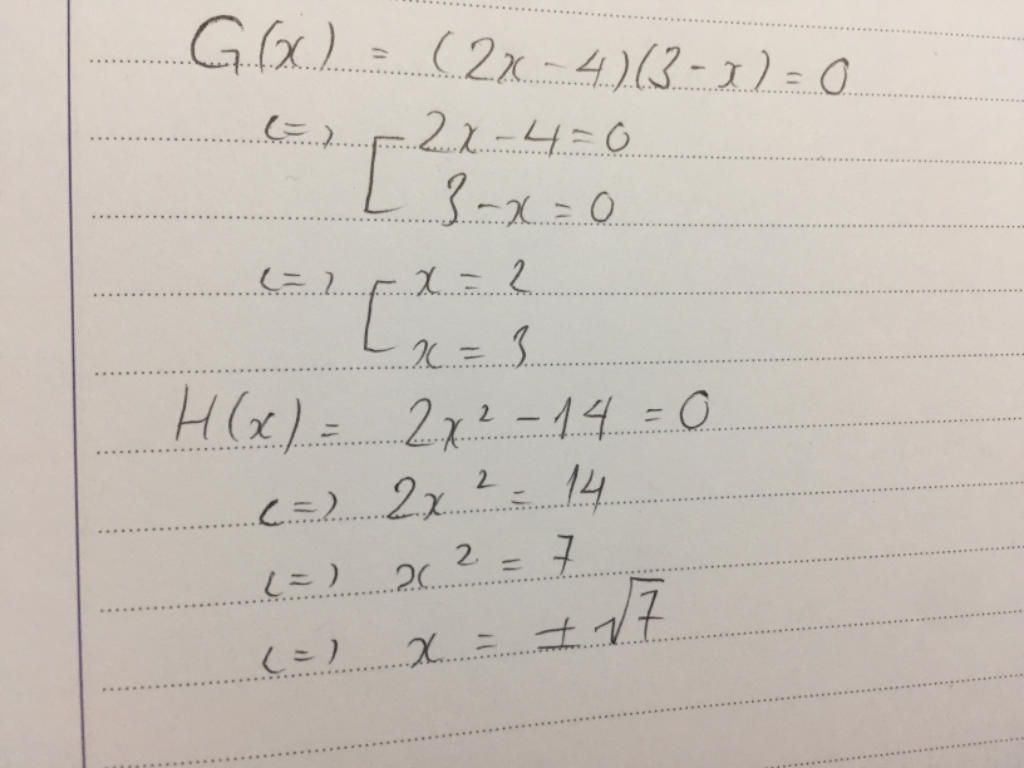 G(x) = (2x - 4)(3 - x) = 0
<=> [ 2x - 4 = 0
3 - x = 0
<=> [ x = 2
x = 3
H(x) = 2x² - 14 = 0
<=> 2x² = 14
<=> x² = 7
<=> x = ±√7